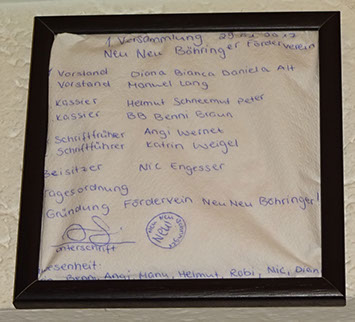 1 Versammlung
Neu Neu Böhringer Förderverein
Vorstand Diana Bianca Daniela Alt
Vorstand Manuel Lang
Kassier Helmut Peter
Kassier BB Benni Braun
Schriftführer Angi Wernet
Schriftführer Katrin Weigel
Beisitzer Nic Engesser
Tagesordnung
Gründung Fördervein Neu Neu Böhringer!
Neu!
nterschrift
esenheit:
Benni, Angi, Manu, Helmut, Robi, Nic, Dian